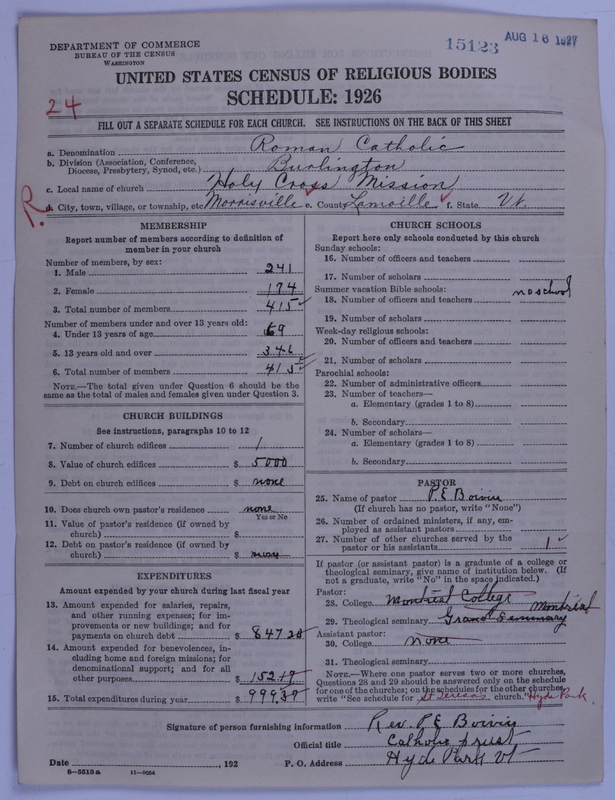 DEPARTMENT OF COMMERCE
BUREAU OF THE CENSUS
WASHINGTON
15123
AUG 16 1927
UNITED STATES CENSUS OF RELIGIOUS BODIES
SCHEDULE: 1926
24
FILL OUT A SEPARATE SCHEDULE FOR EACH CHURCH. SEE INSTRUCTIONS ON THE BACK OF THIS SHEET
a. Denomination Roman Catholic
b. Division (Association, Conference, Diocese, Presbytery, Synod, etc.) Burlington
c. Local name of church Holy Cross Mission
R. d. City, town, village, or township, etc Morrisville e. County Lamoille f. State Vt.
MEMBERSHIP
Report number of members according to definition of
member in your church
Number of members, by sex:
1. Male 241
2. Female 174
3. Total number of members 415
Number of members under and over 13 years old:
4. Under 13 years of age 69
5. 13 years old and over 346
6. Total number of members 415
NOTE.—The total given under Question 6 should be the
same as the total of males and females given under Question 3.
CHURCH BUILDINGS
See instructions, paragraphs 10 to 12
7. Number of church edifices 1
8. Value of church edifices $ 5000
9. Debt on church edifices $ none
10. Does church own pastor's residence none
Yes or No
11. Value of pastor's residence (if owned by
church) $
12. Debt on pastor's residence (if owned by
church) $ none
EXPENDITURES
Amount expended by your church during last fiscal year
13. Amount expended for salaries, repairs,
and other running expenses; for im-
provements or new buildings; and for
payments on church debt $ 847 20
14. Amount expended for benevolences, in-
cluding home and foreign missions; for
denominational support; and for all
other purposes $ 152 19
15. Total expenditures during year $ 999.39
CHURCH SCHOOLS
Report here only schools conducted by this church
Sunday schools:
16. Number of officers and teachers
17. Number of scholars
Summer vacation Bible schools:
18. Number of officers and teachers no school
19. Number of scholars
Week-day religious schools:
20. Number of officers and teachers
21. Number of scholars
Parochial schools:
22. Number of administrative officers
23. Number of teachers—
a. Elementary (grades 1 to 8)
b. Secondary
24. Number of scholars—
a. Elementary (grades 1 to 8)
b. Secondary
PASTOR
25. Name of pastor P. E. Boivin
(If church has no pastor, write "None")
26. Number of ordained ministers, if any, em-
ployed as assistant pastors
27. Number of other churches served by the
pastor or his assistants 1
If pastor (or assistant pastor) is a graduate of a college or
theological seminary, give name of institution below. (If
not a graduate, write "No" in the space indicated.)
Pastor:
28. College Montreal College
Montreal
29. Theological seminary Grand Seminary
Assistant pastor:
30. College none
31. Theological seminary
NOTE.—Where one pastor serves two or more churches,
Questions 28 and 29 should be answered only on the schedule
for one of the churches; on the schedules for the other churches
write "See schedule for St Teresa's church." Hyde Park.
Signature of person furnishing information Rev. P. E. Boivin
Official title Catholic priest
Date , 192 P. O. Address Hyde Park Vt
8—5518a 11—9054